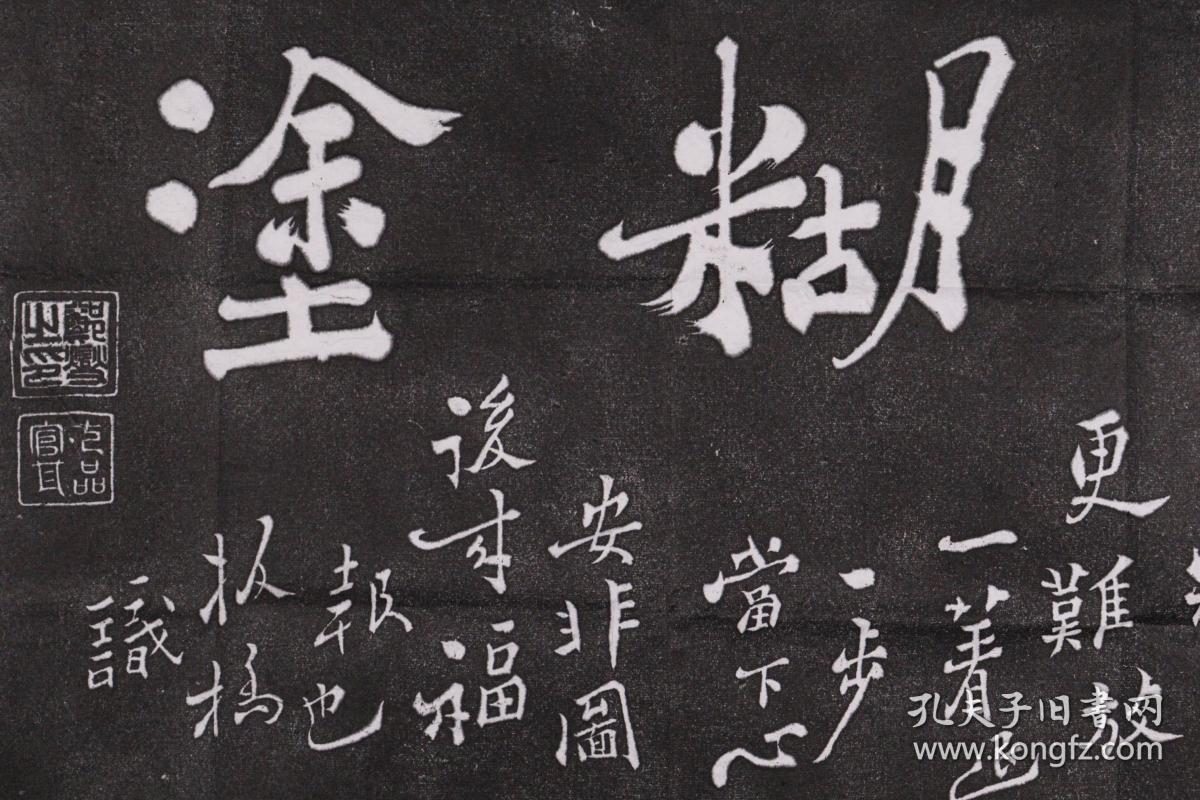 糊塗
更難放
一著退
一步
當下心
安非圖
後来福
報也
板橋
識
鄭燮之印
七品官耳
孔夫子旧書网
www.kongfz.com